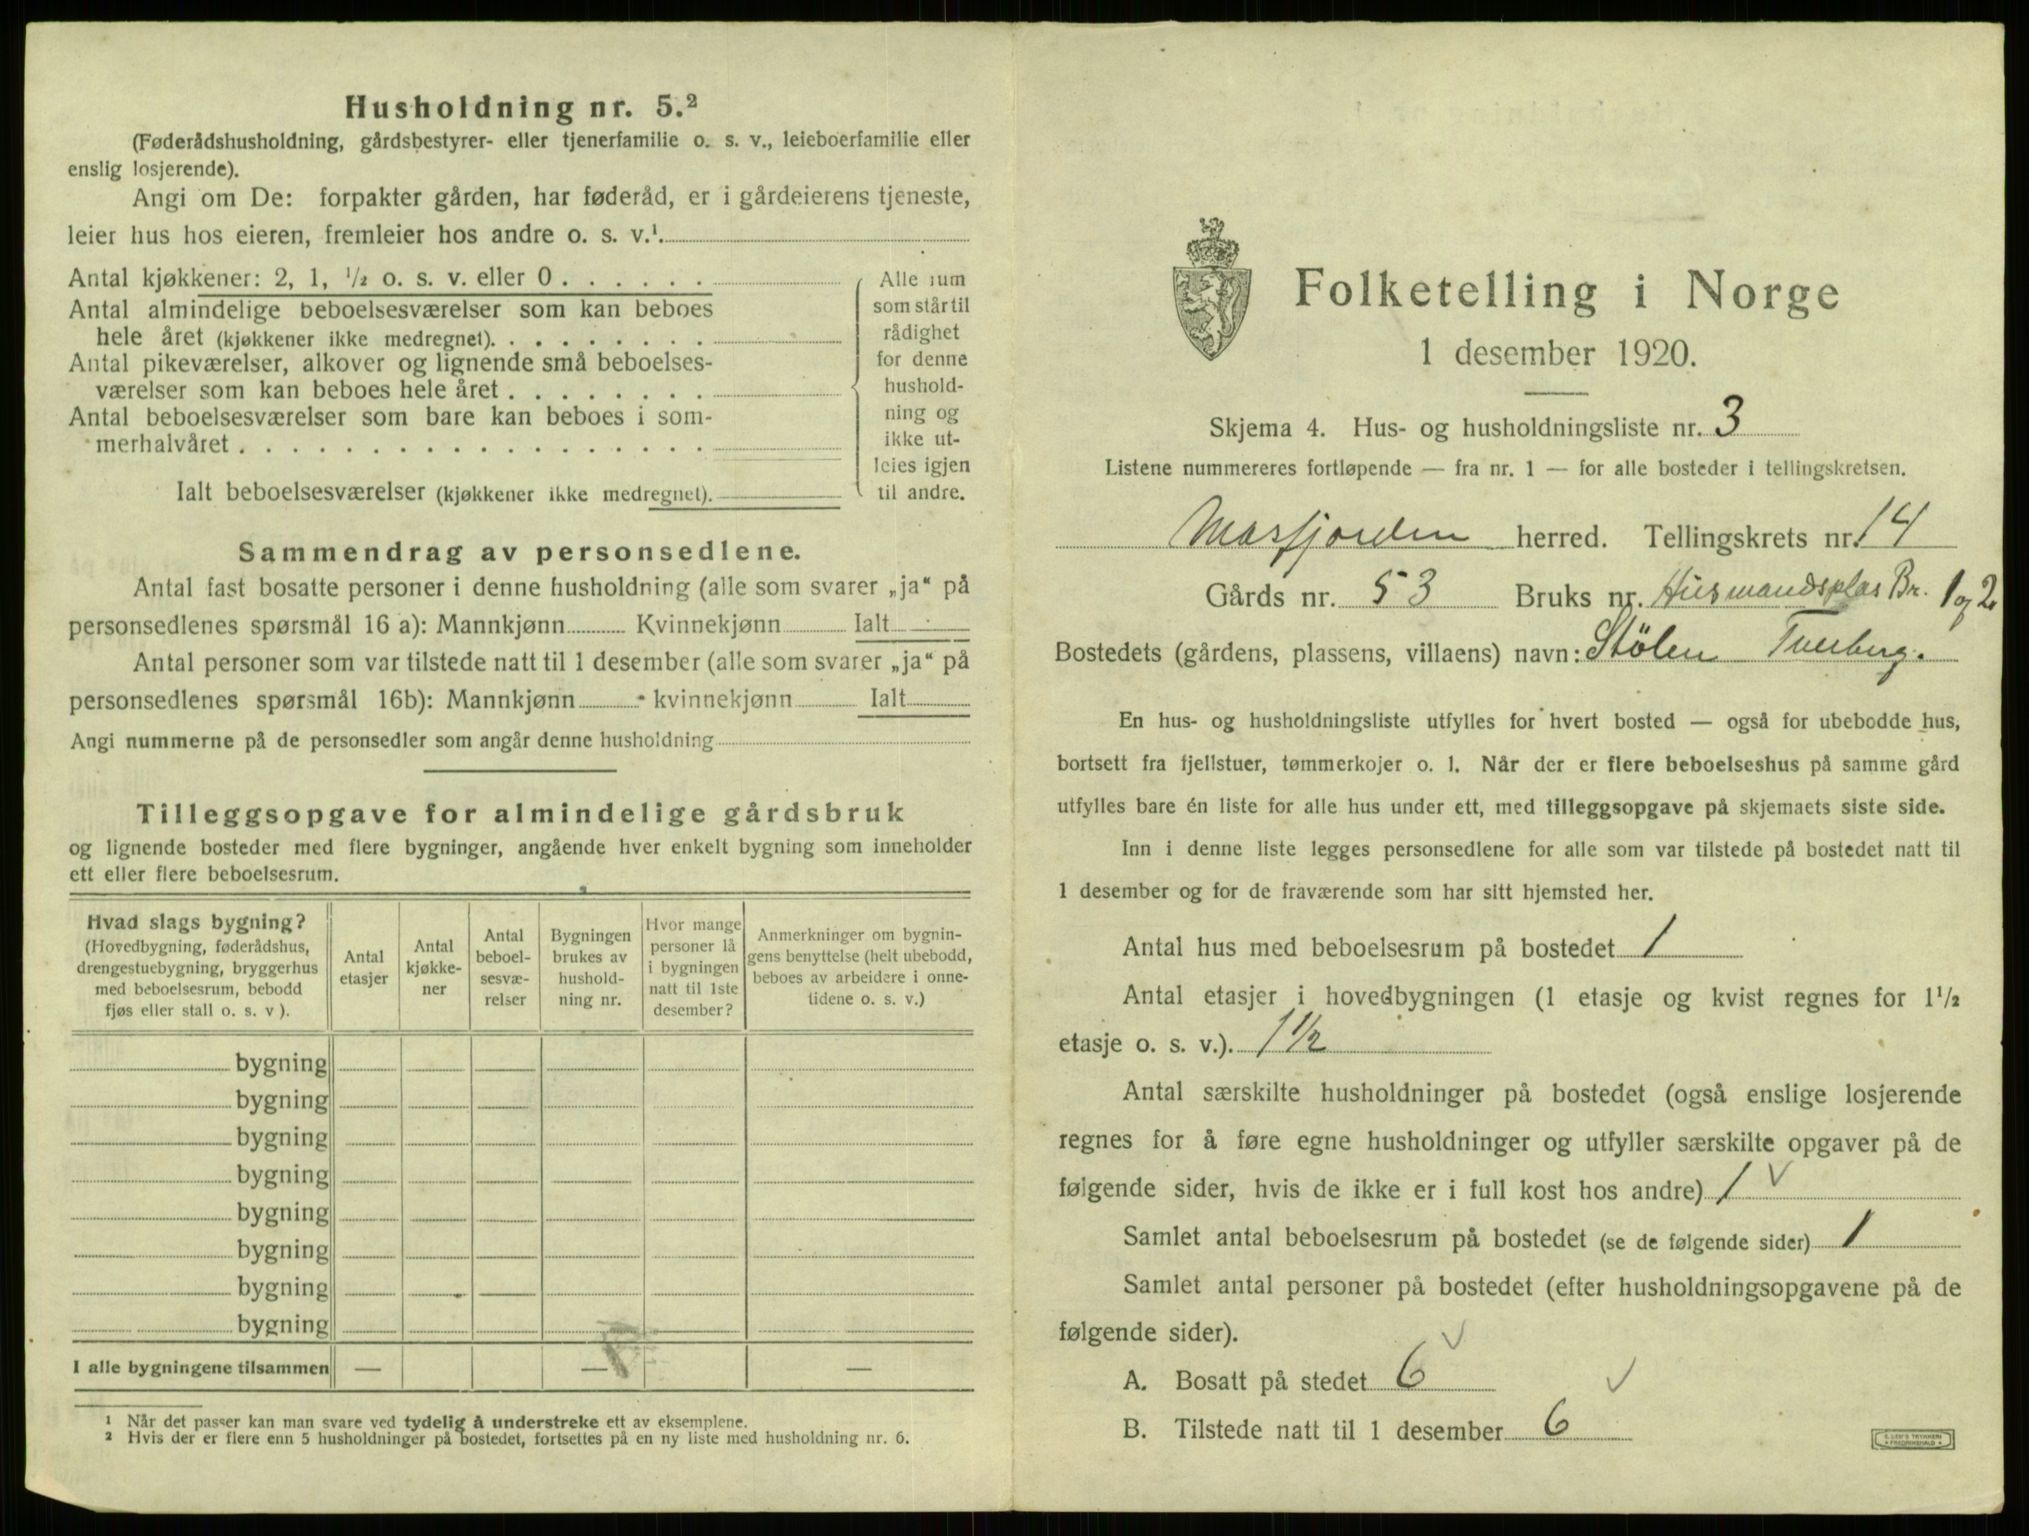 Husholdning nr. 5.²
(Føderådshusholdning, gårdsbestyrer- eller tjenerfamilie o. s. v., leieboerfamilie eller
enslig losjerende).
Angi om De: forpakter gården, har føderåd, er i gårdeierens tjeneste,
leier hus hos eieren, fremleier hos andre o. s. v.¹.
Antal kjøkkener: 2, 1, ½ o. s. v. eller 0 . . . . . .
Antal almindelige beboelsesværelser som kan beboes
hele året (kjøkkener ikke medregnet). . . . . . . . .
Antal pikeværelser, alkover og lignende små beboelses-
værelser som kan beboes hele året . . . . . . . .
Antal beboelsesværelser som bare kan beboes i som-
merhalvåret . . . . . . . . . . . . . . . . . .
Ialt beboelsesværelser (kjøkkener ikke medregnet).
Alle rum
som står til
rådighet
for denne
hushold-
ning og
ikke ut-
leies igjen
til andre.
Sammendrag av personsedlene.
Antal fast bosatte personer i denne husholdning (alle som svarer „ja“ på
personsedlenes spørsmål 16 a): Mannkjønn Kvinnekjønn Ialt
Antal personer som var tilstede natt til 1 desember (alle som svarer „ja“ på
personsedlenes spørsmål 16b): Mannkjønn kvinnekjønn Ialt
Angi nummerne på de personsedler som angår denne husholdning
Tilleggsopgave for almindelige gårdsbruk
og lignende bosteder med flere bygninger, angående hver enkelt bygning som inneholder
ett eller flere beboelsesrum.
Hvad slags bygning?
(Hovedbygning, føderådshus,
drengestuebygning, bryggerhus
med beboelsesrum, bebodd
fjøs eller stall o. s. v ).
Antal
etasjer
Antal
kjøkke-
ner
Antal
beboel-
sesvæ-
relser
Bygningen
brukes av
hushold-
ning nr.
Hvor mange
personer lå
i bygningen
natt til 1ste
desember?
Anmerkninger om bygnin-
gens benyttelse (helt ubebodd,
beboes av arbeidere i onne-
tidene o. s. v.)
bygning
bygning
bygning
bygning
bygning
bygning
bygning
bygning
I alle bygningene tilsammen — — —
¹ Når det passer kan man svare ved tydelig å understreke ett av eksemplene.
² Hvis der er flere enn 5 husholdninger på bostedet, fortsettes på en ny liste med husholdning nr. 6.
Folketelling i Norge
1 desember 1920.
Skjema 4. Hus- og husholdningsliste nr. 3
Listene nummereres fortløpende — fra nr. 1 — for alle bosteder i tellingskretsen.
Masfjorden herred. Tellingskrets nr. 14
Gårds nr. 53 Bruks nr. Husmandsplas Br. 1 og 2
Bostedets (gårdens, plassens, villaens) navn: Stölen Tverberg.
En hus- og husholdningsliste utfylles for hvert bosted — også for ubebodde hus,
bortsett fra fjellstuer, tømmerkojer o. l. Når der er flere beboelseshus på samme gård
utfylles bare én liste for alle hus under ett, med tilleggsopgave på skjemaets siste side.
Inn i denne liste legges personsedlene for alle som var tilstede på bostedet natt til
1 desember og for de fraværende som har sitt hjemsted her.
Antal hus med beboelsesrum på bostedet 1
Antal etasjer i hovedbygningen (1 etasje og kvist regnes for 1½
etasje o. s. v.). 1½
Antal særskilte husholdninger på bostedet (også enslige losjerende
regnes for å føre egne husholdninger og utfyller særskilte opgaver på de
følgende sider, hvis de ikke er i full kost hos andre) 1 ✓
Samlet antal beboelsesrum på bostedet (se de følgende sider) 1
Samlet antal personer på bostedet (efter husholdningsopgavene på de
følgende sider).
A. Bosatt på stedet 6 ✓
B. Tilstede natt til 1 desember 6 ✓